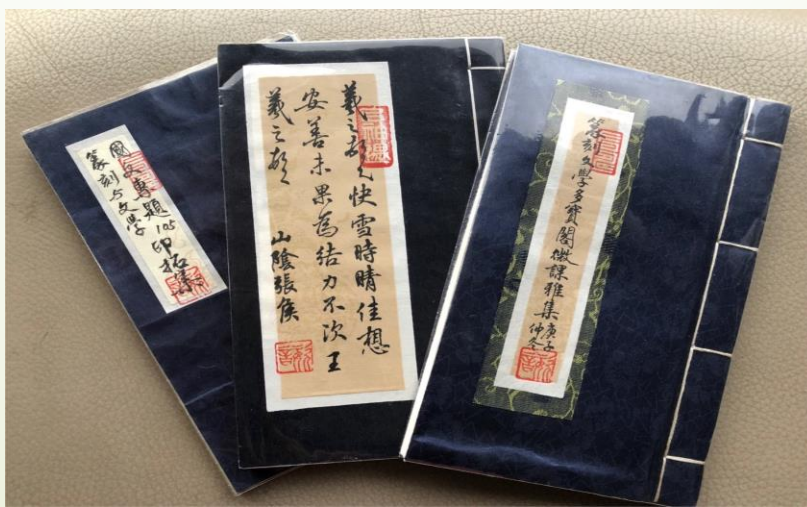 國文專題105印拓集
篆刻与文學
羲之頓首快雪時晴佳想
安善未果為結力不次王
羲之頓首
山陰張侯
篆刻文學多寶閣微課雅集
庚子
仲冬